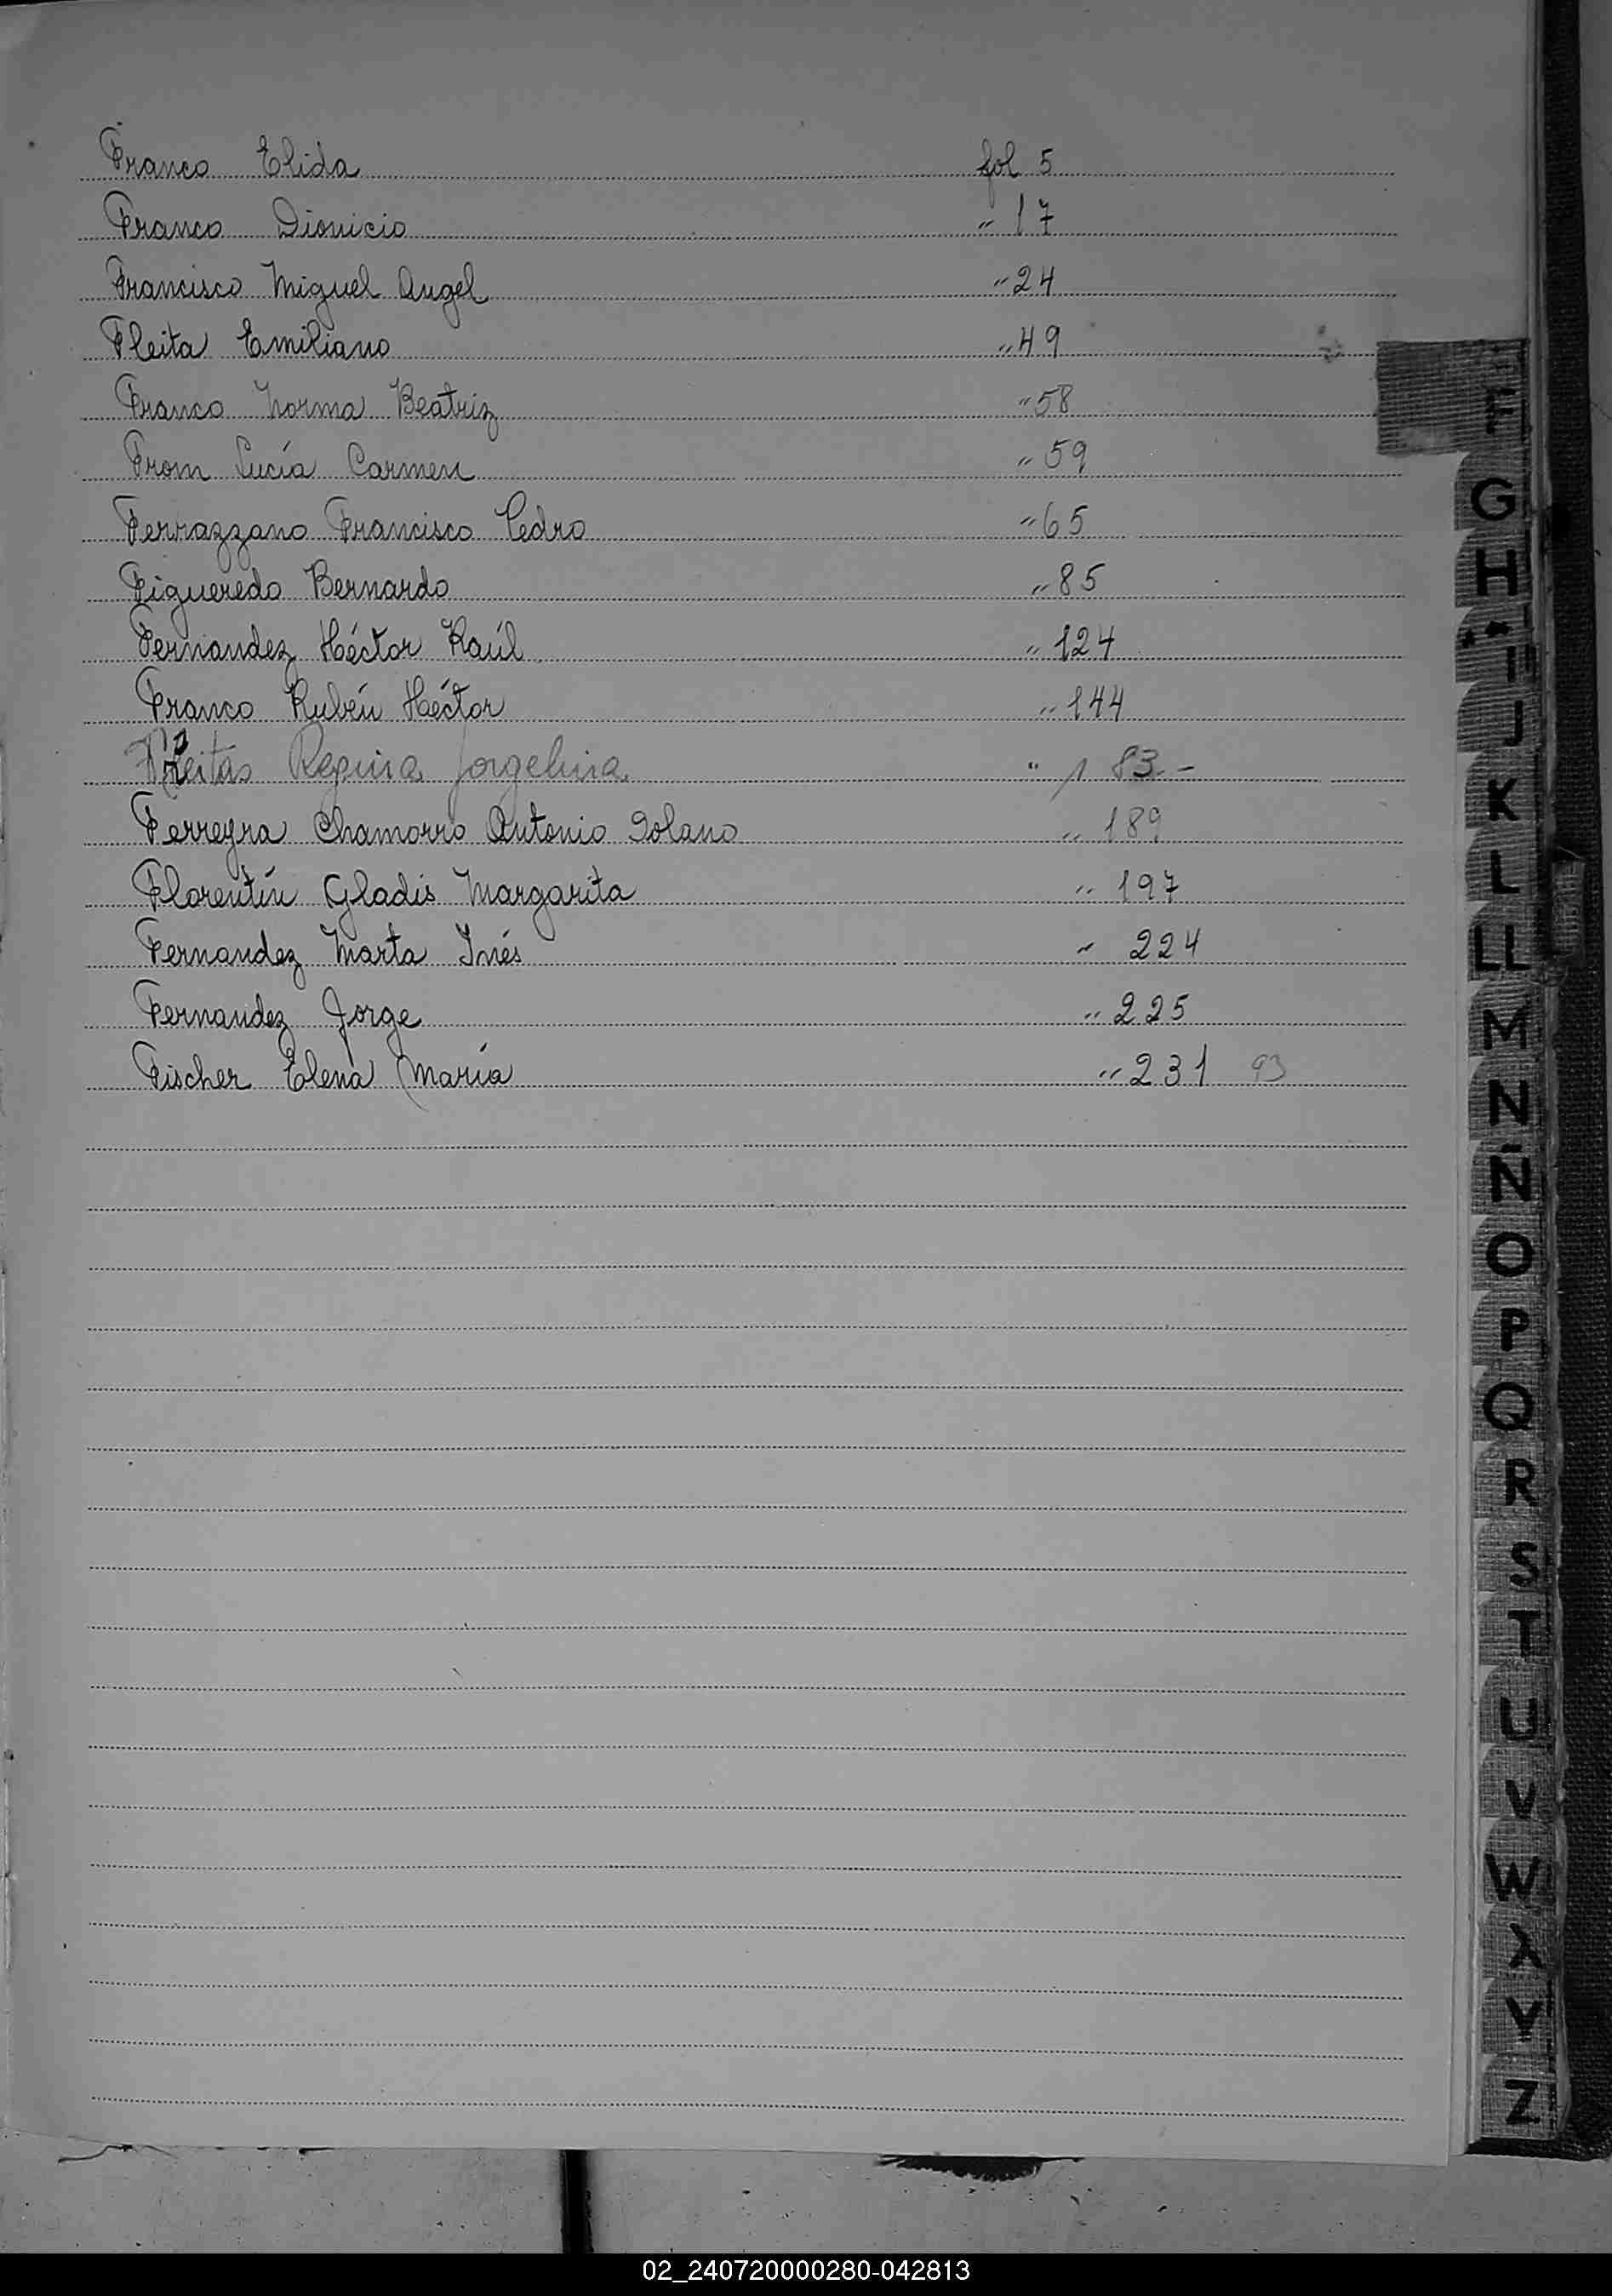 Franco Elida fol 5
Franco Dionicio " 17
Francisco Miguel Angel " 24
Fleita Emiliano " 49
Franco Norma Beatriz " 58
From Lucía Carmen " 59
Ferrazzano Francisco Pedro " 65
Figueredo Bernardo " 85
Fernandez Héctor Raúl " 124
Franco Rubén Héctor " 144
Freitas Regina Jorgelina " 183.-
Ferreyra Chamorro Antonio Solano " 189
Florentín Gladis Margarita " 197
Fernandez Marta Inés " 224
Fernandez Jorge " 225
Fischer Elena María " 231 93
F
G
H
I
J
K
L
LL
M
N
Ñ
O
P
Q
R
S
T
U
V
W
X
Y
Z
02_240720000280-042813